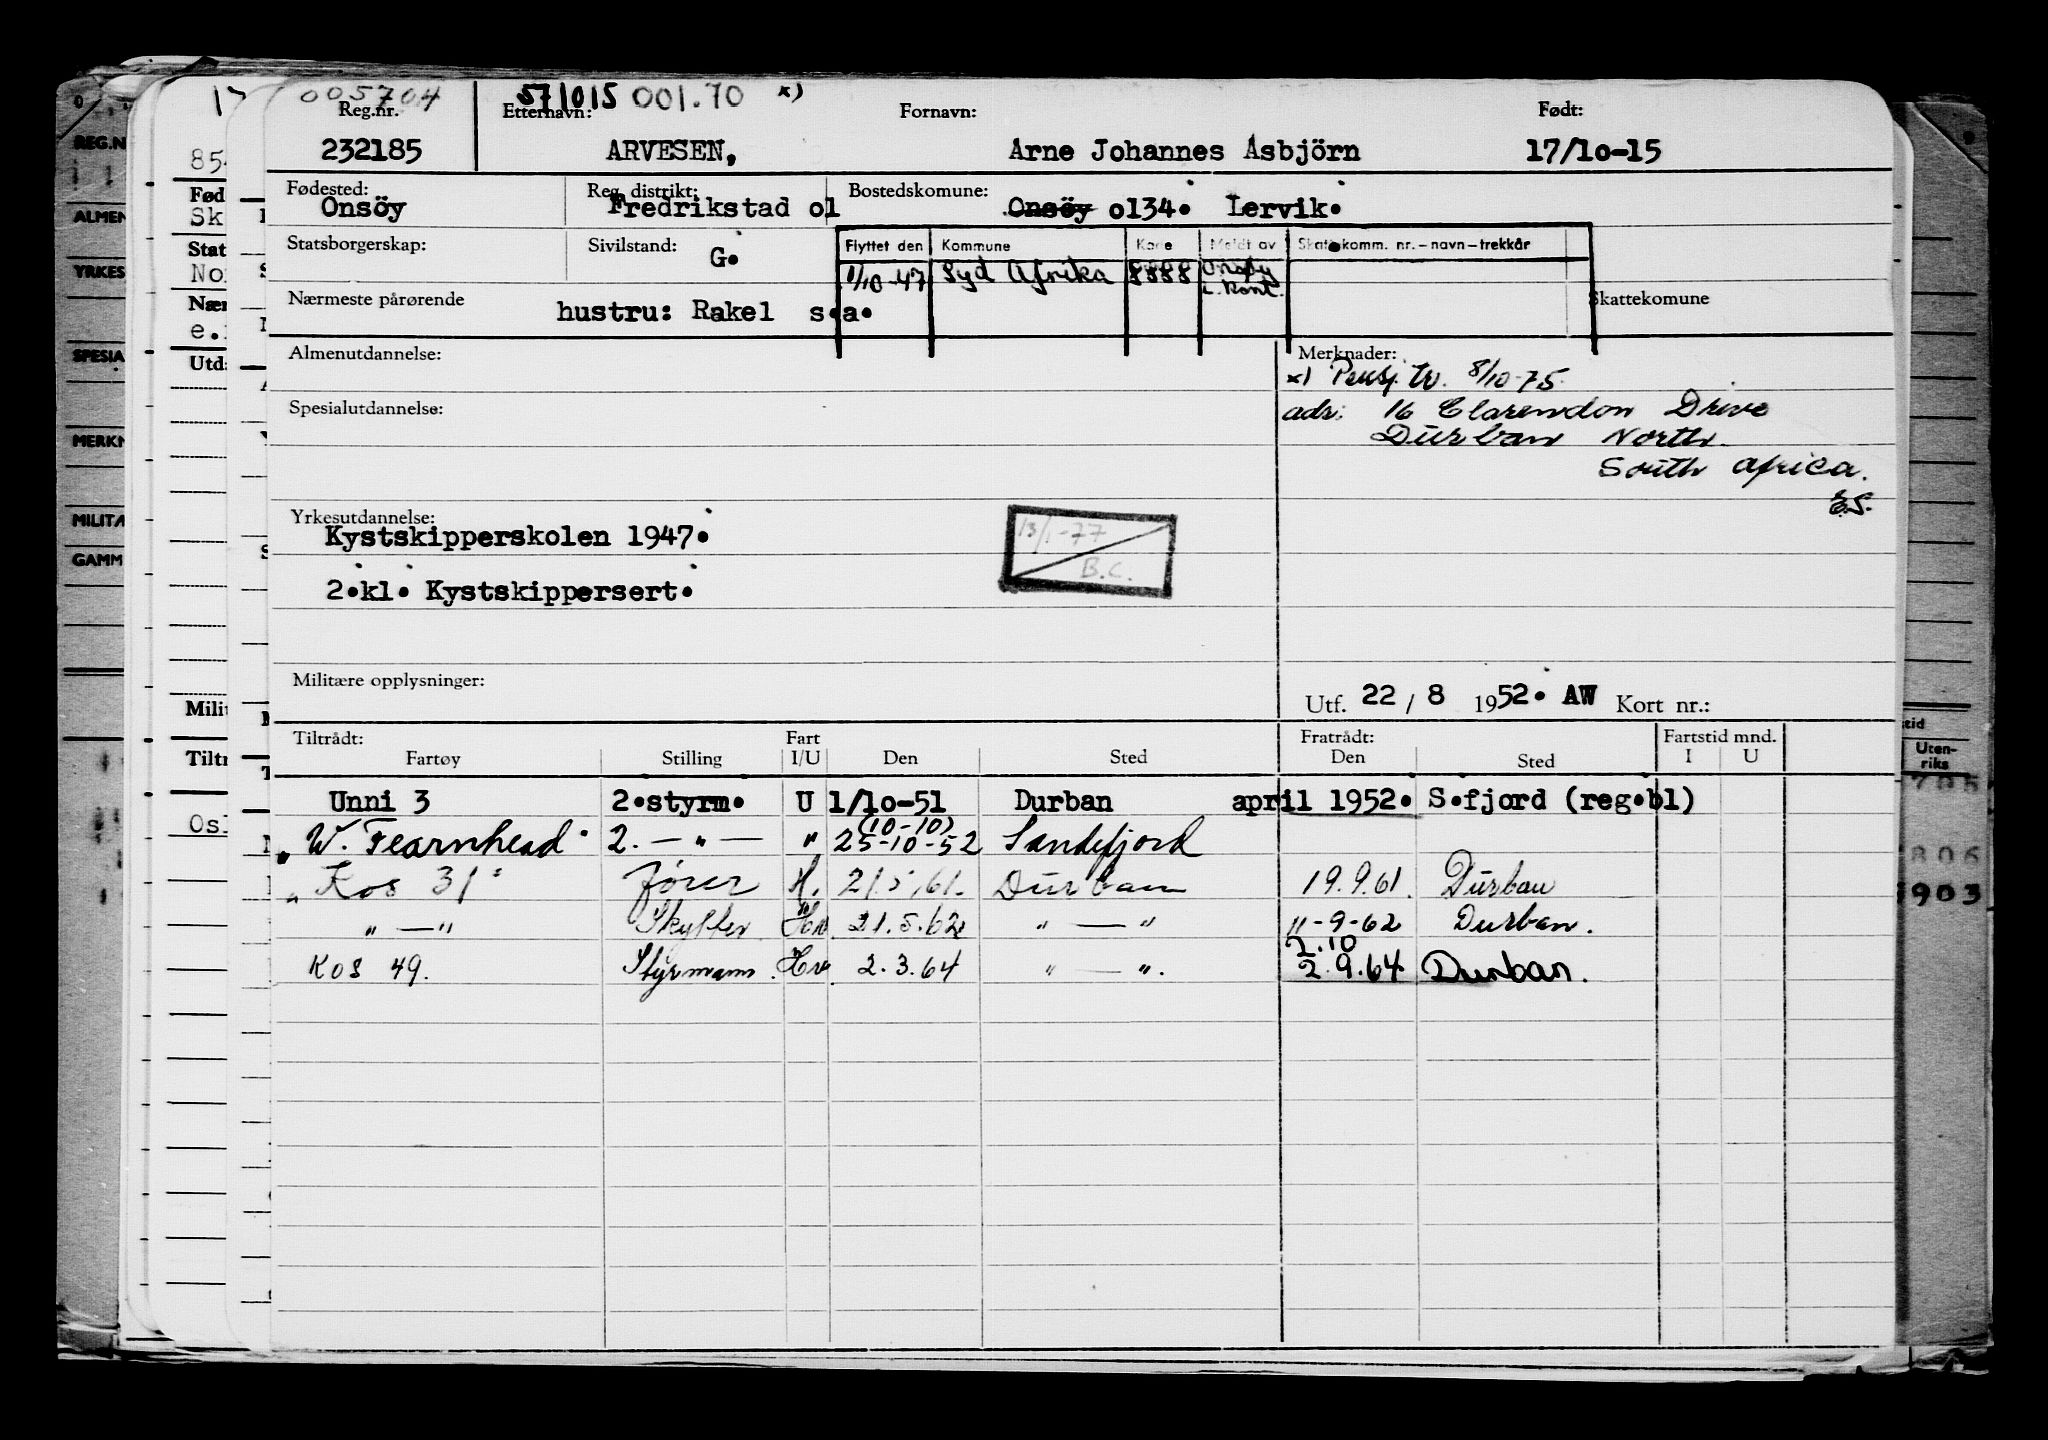 005704 571015 001.70 x)
Reg.nr. Etternavn: Fornavn: Født:
232185 ARVESEN, Arne Johannes Asbjörn 17/1o-15
Fødested: Reg. distrikt: Bostedskomune:
Onsöy Fredrikstad o1 Onsöy o134. Lervik.
Statsborgerskap: Sivilstand: G. Flyttet den Kommune Kode Meldt av Skattekomm. nr. – navn – trekkår
1/10-47 Syd Afrika 8888 Onsøy
Nærmeste pårørende hustru: Rakel s.a. Skattekomune
Almenutdannelse: Merknader:
x) Pensj. tr. 8/10-75.
Spesialutdannelse: adr: 16 Clarendon Drive
Durban North.
South Africa.
E.S.
Yrkesutdannelse:
Kystskipperskolen 1947.
13/1-77
B.C.
2.kl. Kystskippersert.
Militære opplysninger:
Utf. 22 / 8 1952. AW Kort nr.:
Tiltrådt: Fart Fratrådt: Fartstid mnd.
Fartøy Stilling I/U Den Sted Den Sted I U
Unni 3 2.styrm. U 1/1o-51 Durban april 1952. S.fjord (reg.bl)
(10-10)
"W. Fearnhead" 2. — " — " 25-10-52 Sandefjord
"Kos 31" fører H. 21.5.61. Durban 19.9.61. Durban
" — " Skytter Hv 21.5.62 " — " 11-9-62 Durban.
2.10
Kos 49. Styrmann. Hv 2.3.64 " — ". 2.9.64 Durban.
REG.N
ALMEN
YRKES
SPESIA
MERKN
MILITÆ
GAMM
Fød
Sk
Stat
No
Nær
e.
Utd
Milit
Tiltr
Os
Uten-
riks
806
903